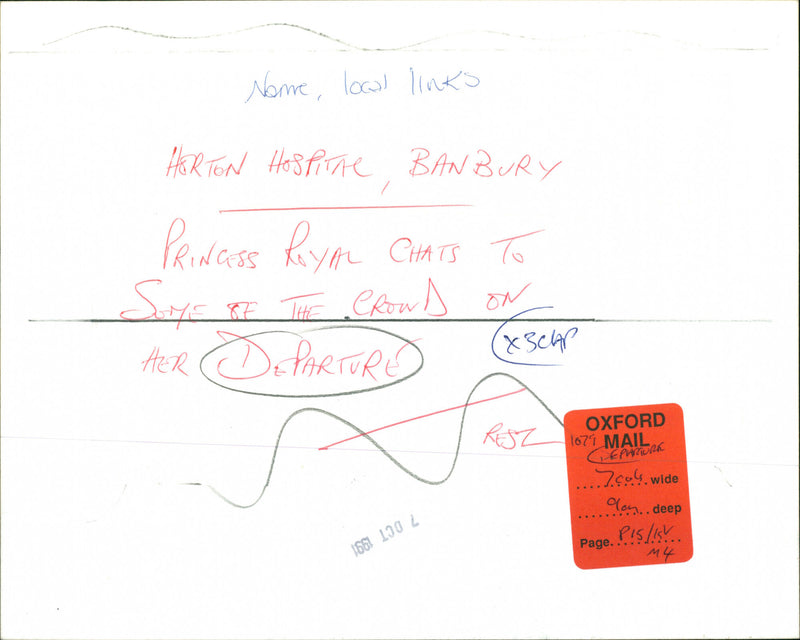 Name, local links
HORTON HOSPITAL, BANBURY
PRINCESS ROYAL CHATS TO
SOME OF THE CROWD ON
HER DEPARTURE
OXFORD
MAIL
DEPARTURE
7 cols wide
deep
Page P15/
M4
7 OCT 1991